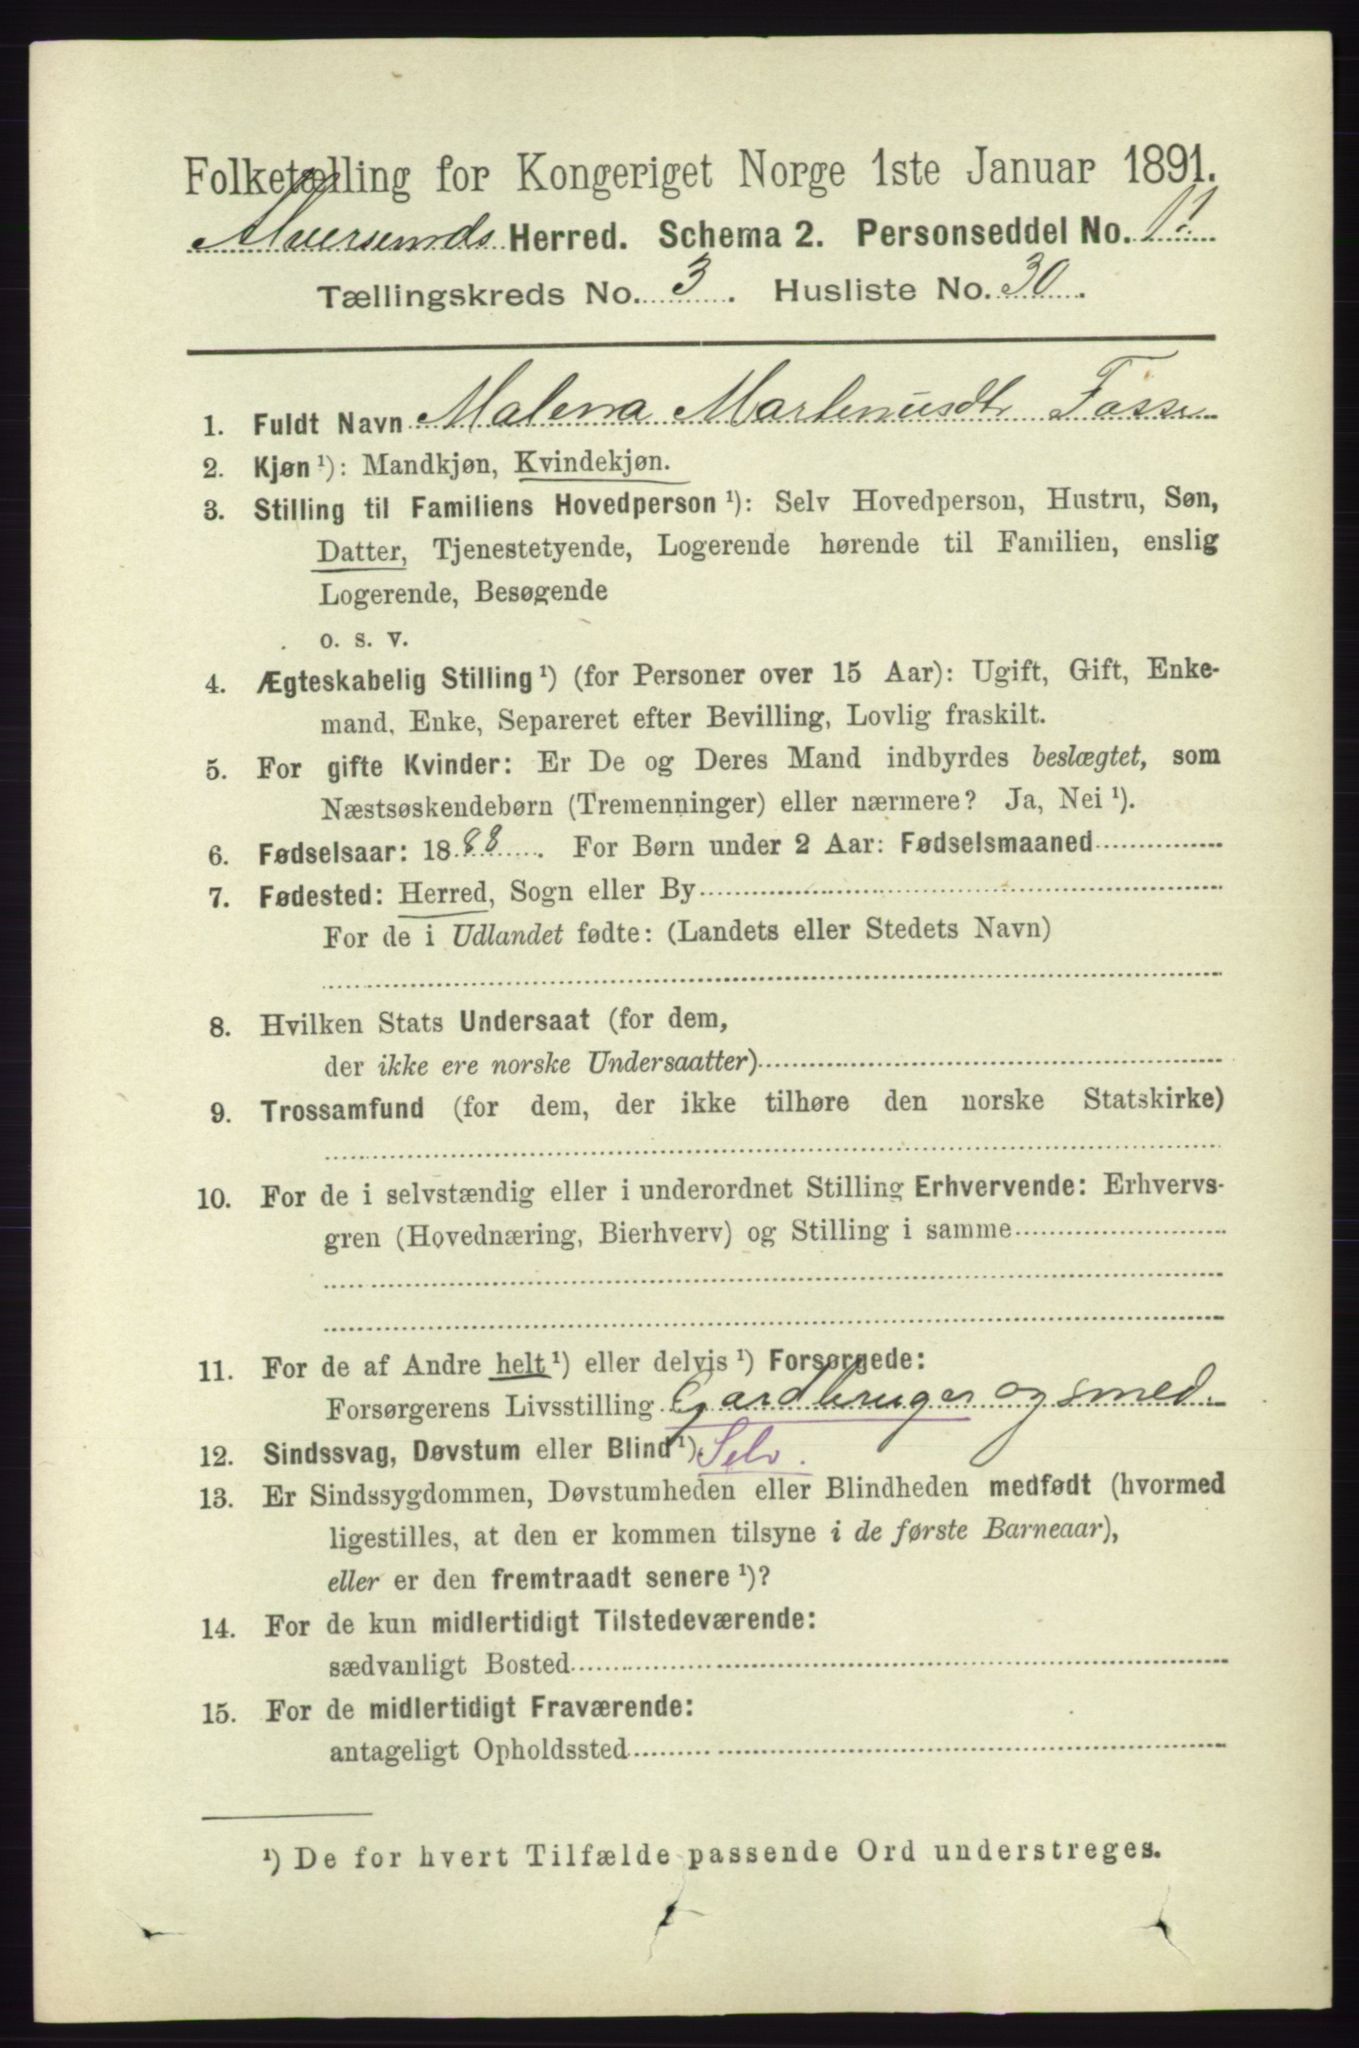 Folketælling for Kongeriget Norge 1ste Januar 1891.
Alversunds Herred. Schema 2. Personseddel No. 11
Tællingskreds No. 3. Husliste No. 30.
1. Fuldt Navn Malena Martinusdtr Fosse
2. Kjøn ¹): Mandkjøn, Kvindekjøn.
3. Stilling til Familiens Hovedperson ¹): Selv Hovedperson, Hustru, Søn,
Datter, Tjenestetyende, Logerende hørende til Familien, enslig
Logerende, Besøgende
o. s. v.
4. Ægteskabelig Stilling ¹) (for Personer over 15 Aar): Ugift, Gift, Enke-
mand, Enke, Separeret efter Bevilling, Lovlig fraskilt.
5. For gifte Kvinder: Er De og Deres Mand indbyrdes beslægtet, som
Næstsøskendebørn (Tremenninger) eller nærmere? Ja, Nei ¹).
6. Fødselsaar: 1888. For Børn under 2 Aar: Fødselsmaaned
7. Fødested: Herred, Sogn eller By
For de i Udlandet fødte: (Landets eller Stedets Navn)
8. Hvilken Stats Undersaat (for dem,
der ikke ere norske Undersaatter)
9. Trossamfund (for dem, der ikke tilhøre den norske Statskirke)
10. For de i selvstændig eller i underordnet Stilling Erhvervende: Erhvervs-
gren (Hovednæring, Bierhverv) og Stilling i samme
11. For de af Andre helt ¹) eller delvis ¹) Forsørgede:
Forsørgerens Livsstilling Gardbruger og smed.
12. Sindssvag, Døvstum eller Blind ¹). Selv.
13. Er Sindssygdommen, Døvstumheden eller Blindheden medfødt (hvormed
ligestilles, at den er kommen tilsyne i de første Barneaar),
eller er den fremtraadt senere ¹)?
14. For de kun midlertidigt Tilstedeværende:
sædvanligt Bosted
15. For de midlertidigt Fraværende:
antageligt Opholdssted
¹) De for hvert Tilfælde passende Ord understreges.